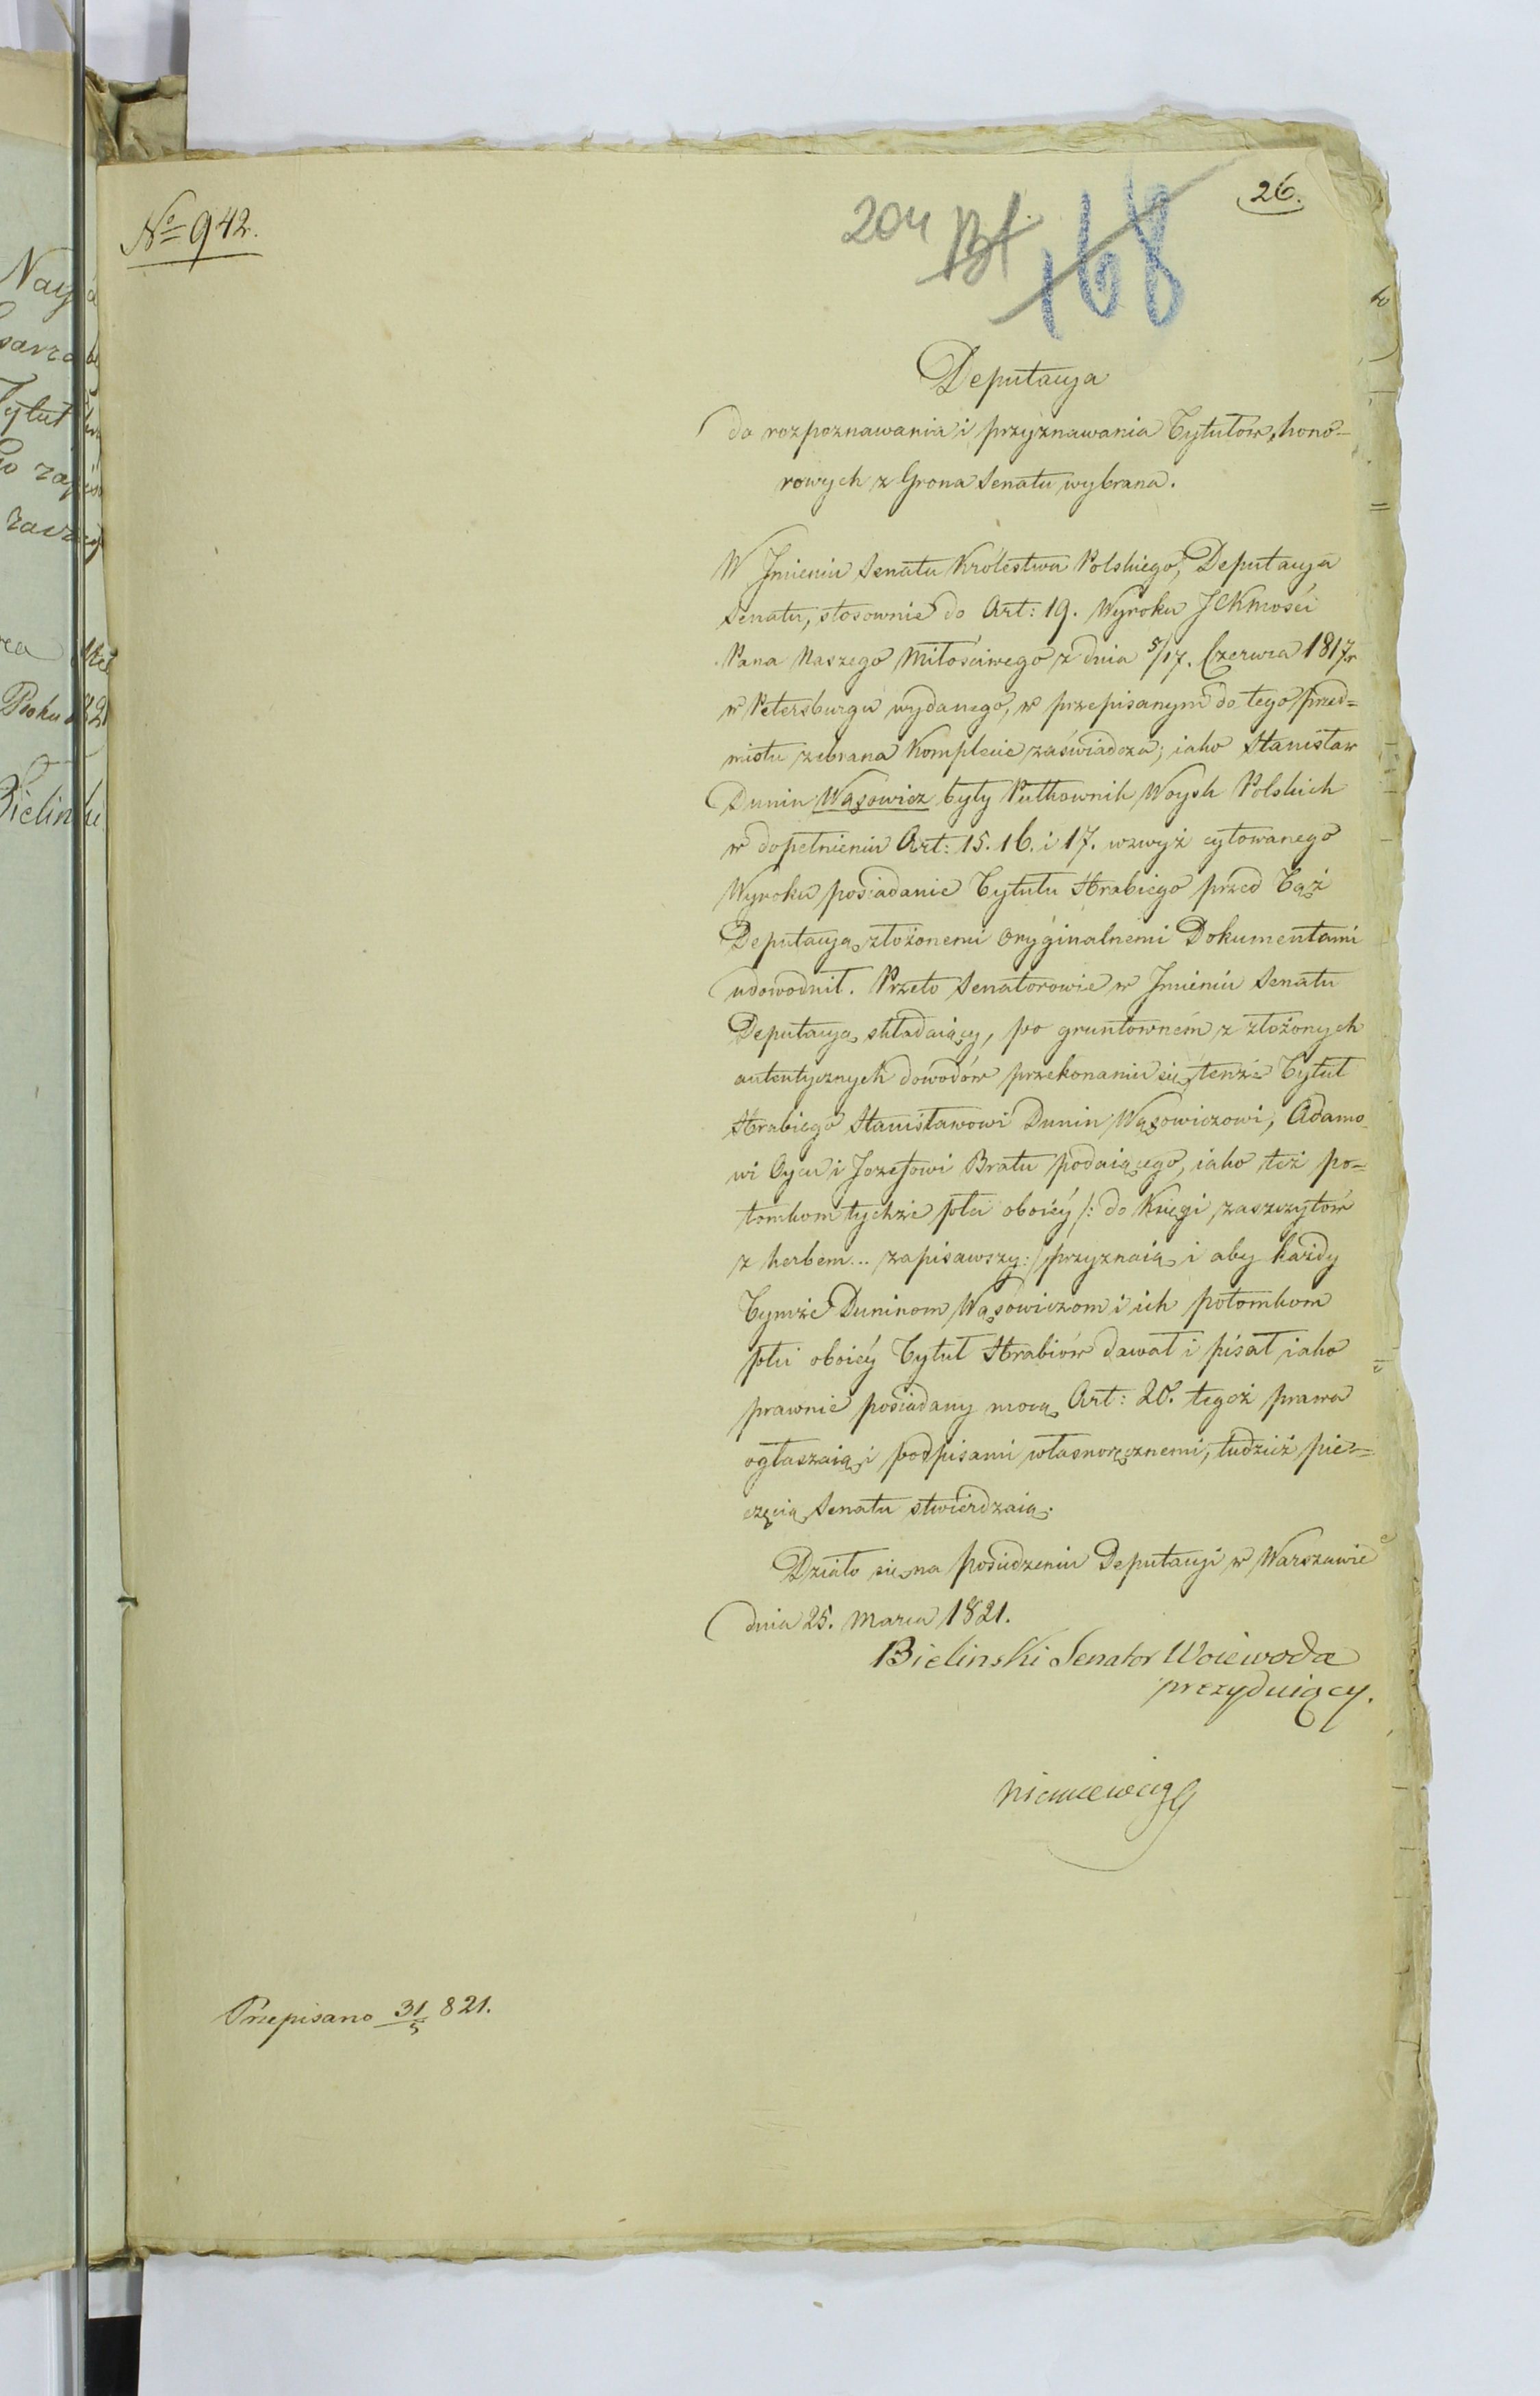 No 942.
204 Bf. 168
26.
Deputacya
do rozpoznawania i przyznawania Tytułow hono-
rowych z Grona Senatu wybrana.
W Jmieniu Senatu Królestwa Polskiego, Deputacya
Senatu, stosownie do Art: 19. Wyroku JCKmości
Pana Naszego Miłościwego z dnia 5/17. Czerwca 1817.r
w Petersburgu wydanego, w przepisanym do tego przed=
miotu zebrana Komplecie zaświadcza, iako Stanisław
Dunin Wąsowicz były Pułkownik Woysk Polskich
w dopełnieniu Art: 15. 16. i 17. wzwyż cytowanego
Wyroku posiadanie Tytułu Hrabiego przed Tąż
Deputacyą złożonemi oryginalnemi Dokumentami
udowodnił. Przeto Senatorowie w Jmieniu Senatu
Deputacyą składaiący, po gruntowném z złożonych
autentycznych dowodów przekonaniu się, tenże Tytuł
Hrabiego Stanisławowi Dunin Wąsowiczowi, Adamo-
wi Oycu i Jozefowi Bratu podaiącego, iako też po=
tomkom tychże płci oboiéy /: do Księgi zaszczytów
z herbem... zapisawszy :/ przyznaią i aby każdy
Tymże Duninom Wąsowiczom i ich potomkom
płci oboiéy Tytuł Hrabiów dawał i pisał iako
prawnie posiadany mocą Art: 20. tegoż prawa
ogłaszaią i podpisami własnoręcznemi, tudzież pie=
częcią Senatu stwierdzaią.
Działo się na posiedzeniu Deputacyi w Warszawie
dnia 25. Marca 1821.
Bielinski Senator Woiewoda
prezyduiący.
Niemcewicz
Przepisano 31/5 821.